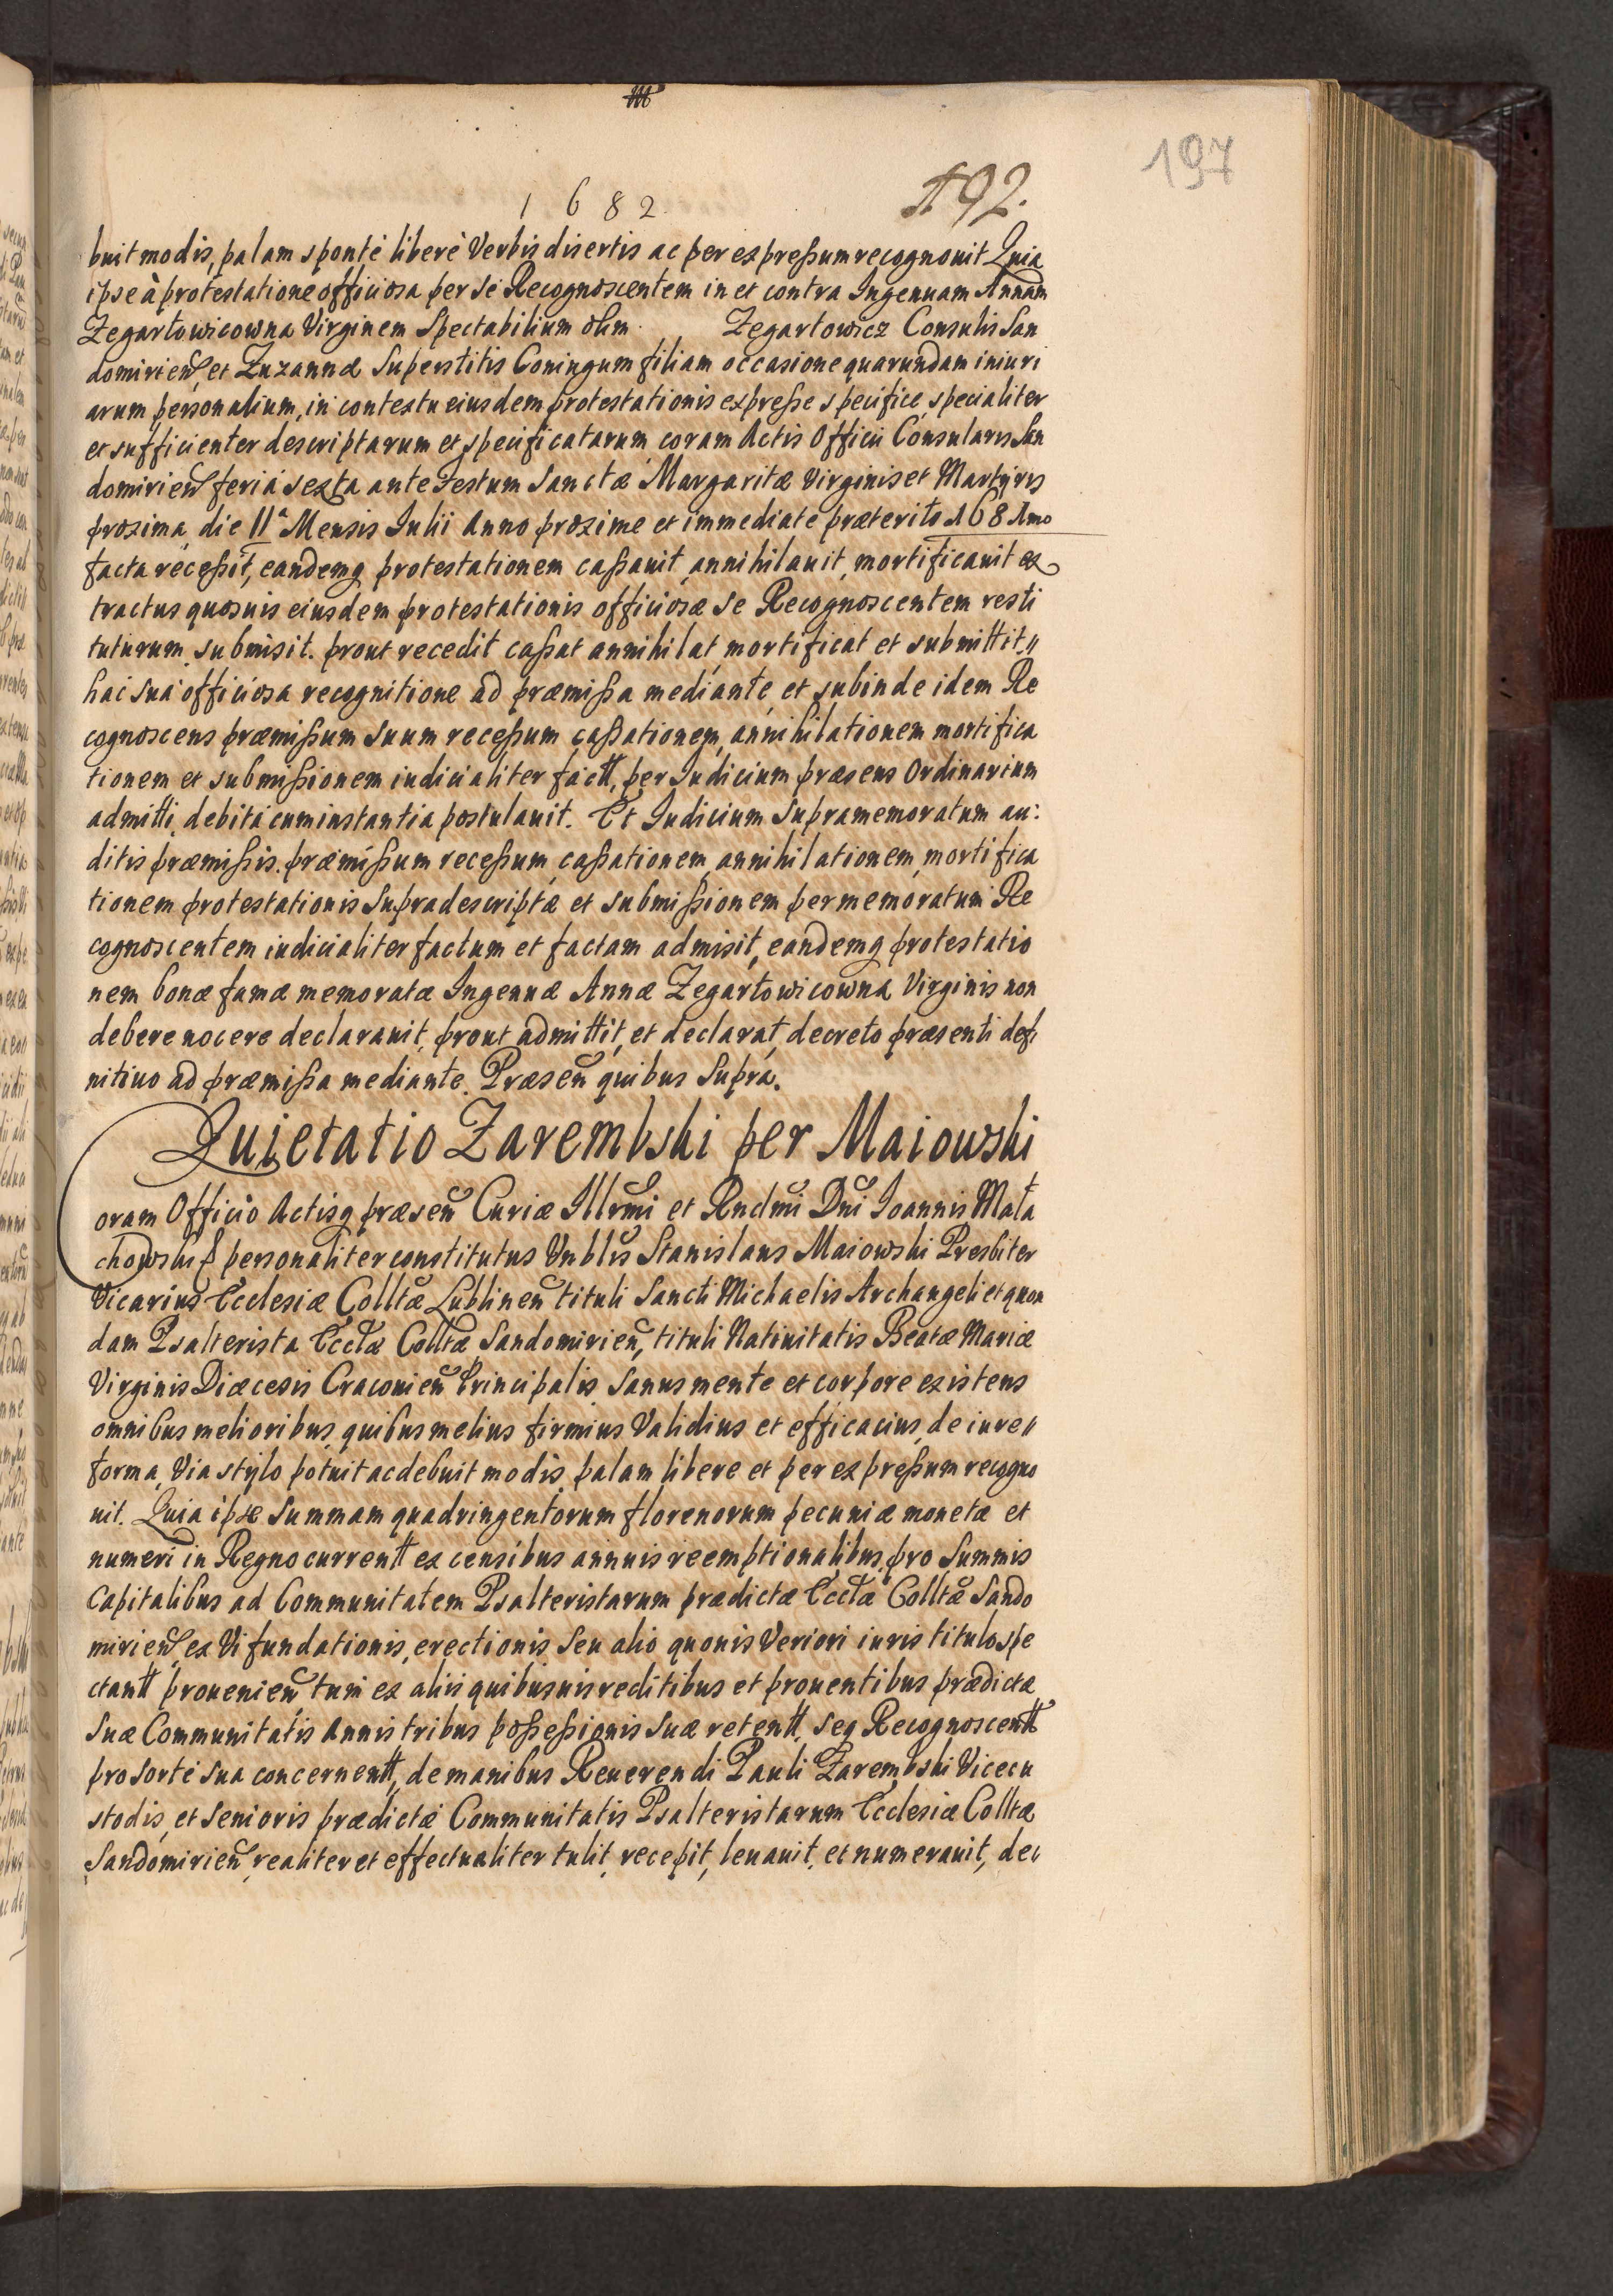 197
1682 192.
buit modis, palam sponté liberè Verbis disertis ac per expreßum recognouit Quia
ipse à protestatione officiosa per se Recognoscentem in et contra Ingenuam Annam
Zegartowicowna Virginem Spectabilium olim Zegartowicz Consulis San
domirień, et Zuzannæ Superstitis Coniugum filiam occasione quarundam iniuri
arum personalium, in contextu eiusdem protestationis expreße specifice, specialiter
et sufficienter descriptarum et specificatarum coram Actis Officii Consularis San
domirień feriá sexta ante Festum Sanctæ Margaritæ Virginis et Martyris
proxima, die 11ª Mensis Iulii Anno proxime et immediate præterito 168 1mo
facta receßit, eandemq protestationem caßauit, annihilauit, mortificauit ex
tractus quosuis eiusdem protestationis officiosæ se Recognoscentem resti
tuturum submisit. prout recedit caßat annihilat mortificat et submittit,,
hac sua officiosa recognitione ad præmißa mediante, et subinde idem Re
cognoscens præmißum suum receßum, caßationem, annihilationem mortifica
tionem et submißionem iudicialiter factt, per Iudicium præsens Ordinarium
admitti, debita cum instantia postulauit. Et Iudicium Supramemoratum au:
ditis præmißis. præmißum receßum, caßationem, annihilationem, mortifica
tionem protestationis Supradescriptæ et submißionem per memoratum Re
cognoscentem iudicialiter factum et factam admisit, eandemq protestatio
nem bonæ famæ memoratæ Ingenuæ Annæ Zegartowicowna Virginis non
debere nocere declarauit, prout admittit, et declarat, decreto præsenti defi
nitiuo ad præmißa mediante. Præseñ quibus Supra.
Quietatio Zarembski per Maiowski
Coram Officio Actisq præseñ Curiæ Illrmi et Rndmi Dni Ioannis Mała
chowski personaliter constitutus Vnblis Stanislaus Maiowski Presbiter
Vicarius Ecclesiæ Colltæ Lublineñ tituli Sancti Michaelis Archangeli et quon
dam Psalterista Ecclæ Colltæ Sandomirień, tituli Natiuitatis Beatæ Mariæ
Virginis Diæcesis Cracouień Principalis Sanus mente et corpore existens
omnibus melioribus quibus melius firmius Validius et efficacius, de iure,,
forma, Via stylo potuit ac debuit modis palam libere et per expreßum recogno
uit. Quia ipse Summam quadringentorum florenorum pecuniæ monetæ et
numeri in Regno currentt ex censibus annuis reemptionalibus, pro Summis
Capitalibus ad Communitatem Psalteristarum prædictæ Ecclæ Colltæ Sando
mirień, ex Vi fundationis, erectionis Seu alio quouis Veriori iuris titulo spe
ctantt prouenień tum ex aliis quibusuis reditibus et prouentibus prædictæ
Suæ Communitatis Annis tribus poßeßionis Suæ retentt, seq Recognoscentt
pro Sorte Sua concernentt, de manibus Reuerendi Pauli Zarembski Vicecu
stodis, et Senioris prædictæ Communitatis Psalteristarum Ecclesiæ Colltæ
Sandomirień, realiter et effectualiter tulit, recepit, leuauit, et numerauit, de